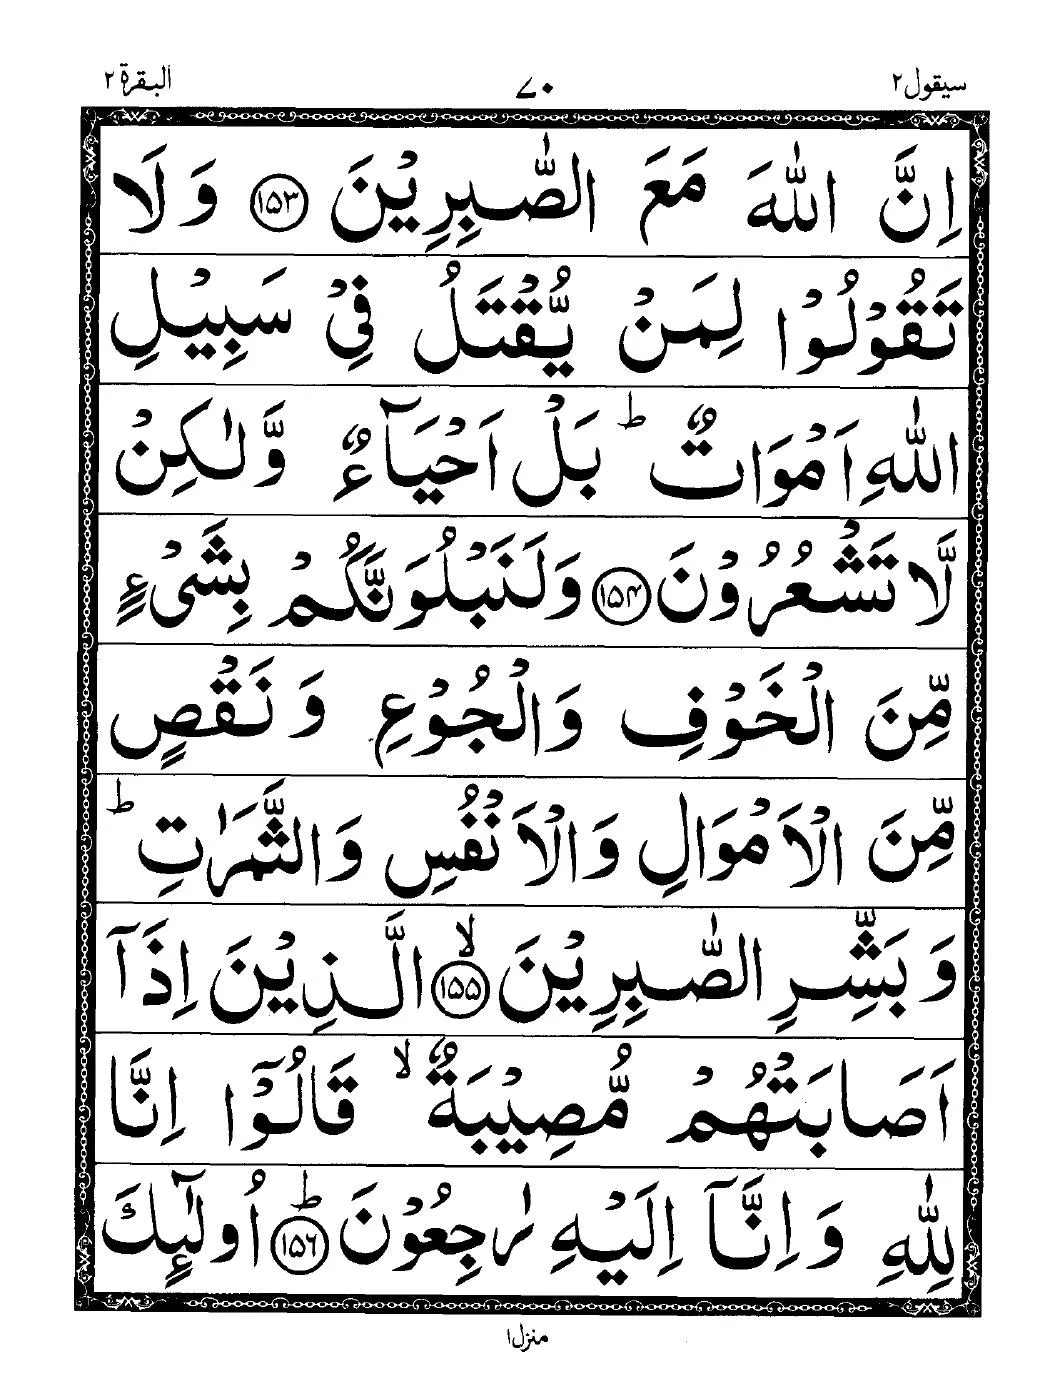 سيقول ٢ ٧٠ البقرة ٢
اِنَّ اللّٰهَ مَعَ الصّٰبِرِيْنَ ﴿١٥٣﴾ وَلَا
تَقُوْلُوْا لِمَنْ يُّقْتَلُ فِيْ سَبِيْلِ
اللّٰهِ اَمْوَاتٌ ؕ بَلْ اَحْيَآءٌ وَّلٰكِنْ
لَّا تَشْعُرُوْنَ ﴿١٥٤﴾ وَلَنَبْلُوَنَّكُمْ بِشَيْءٍ
مِّنَ الْخَوْفِ وَالْجُوْعِ وَنَقْصٍ
مِّنَ الْاَمْوَالِ وَالْاَنْفُسِ وَالثَّمَرٰتِ ؕ
وَبَشِّرِ الصّٰبِرِيْنَ ۙ﴿١٥٥﴾ الَّذِيْنَ اِذَآ
اَصَابَتْهُمْ مُّصِيْبَةٌ ۙ قَالُوْٓا اِنَّا
لِلّٰهِ وَاِنَّآ اِلَيْهِ رٰجِعُوْنَ ؕ﴿١٥٦﴾ اُولٰٓئِكَ
منزل ١